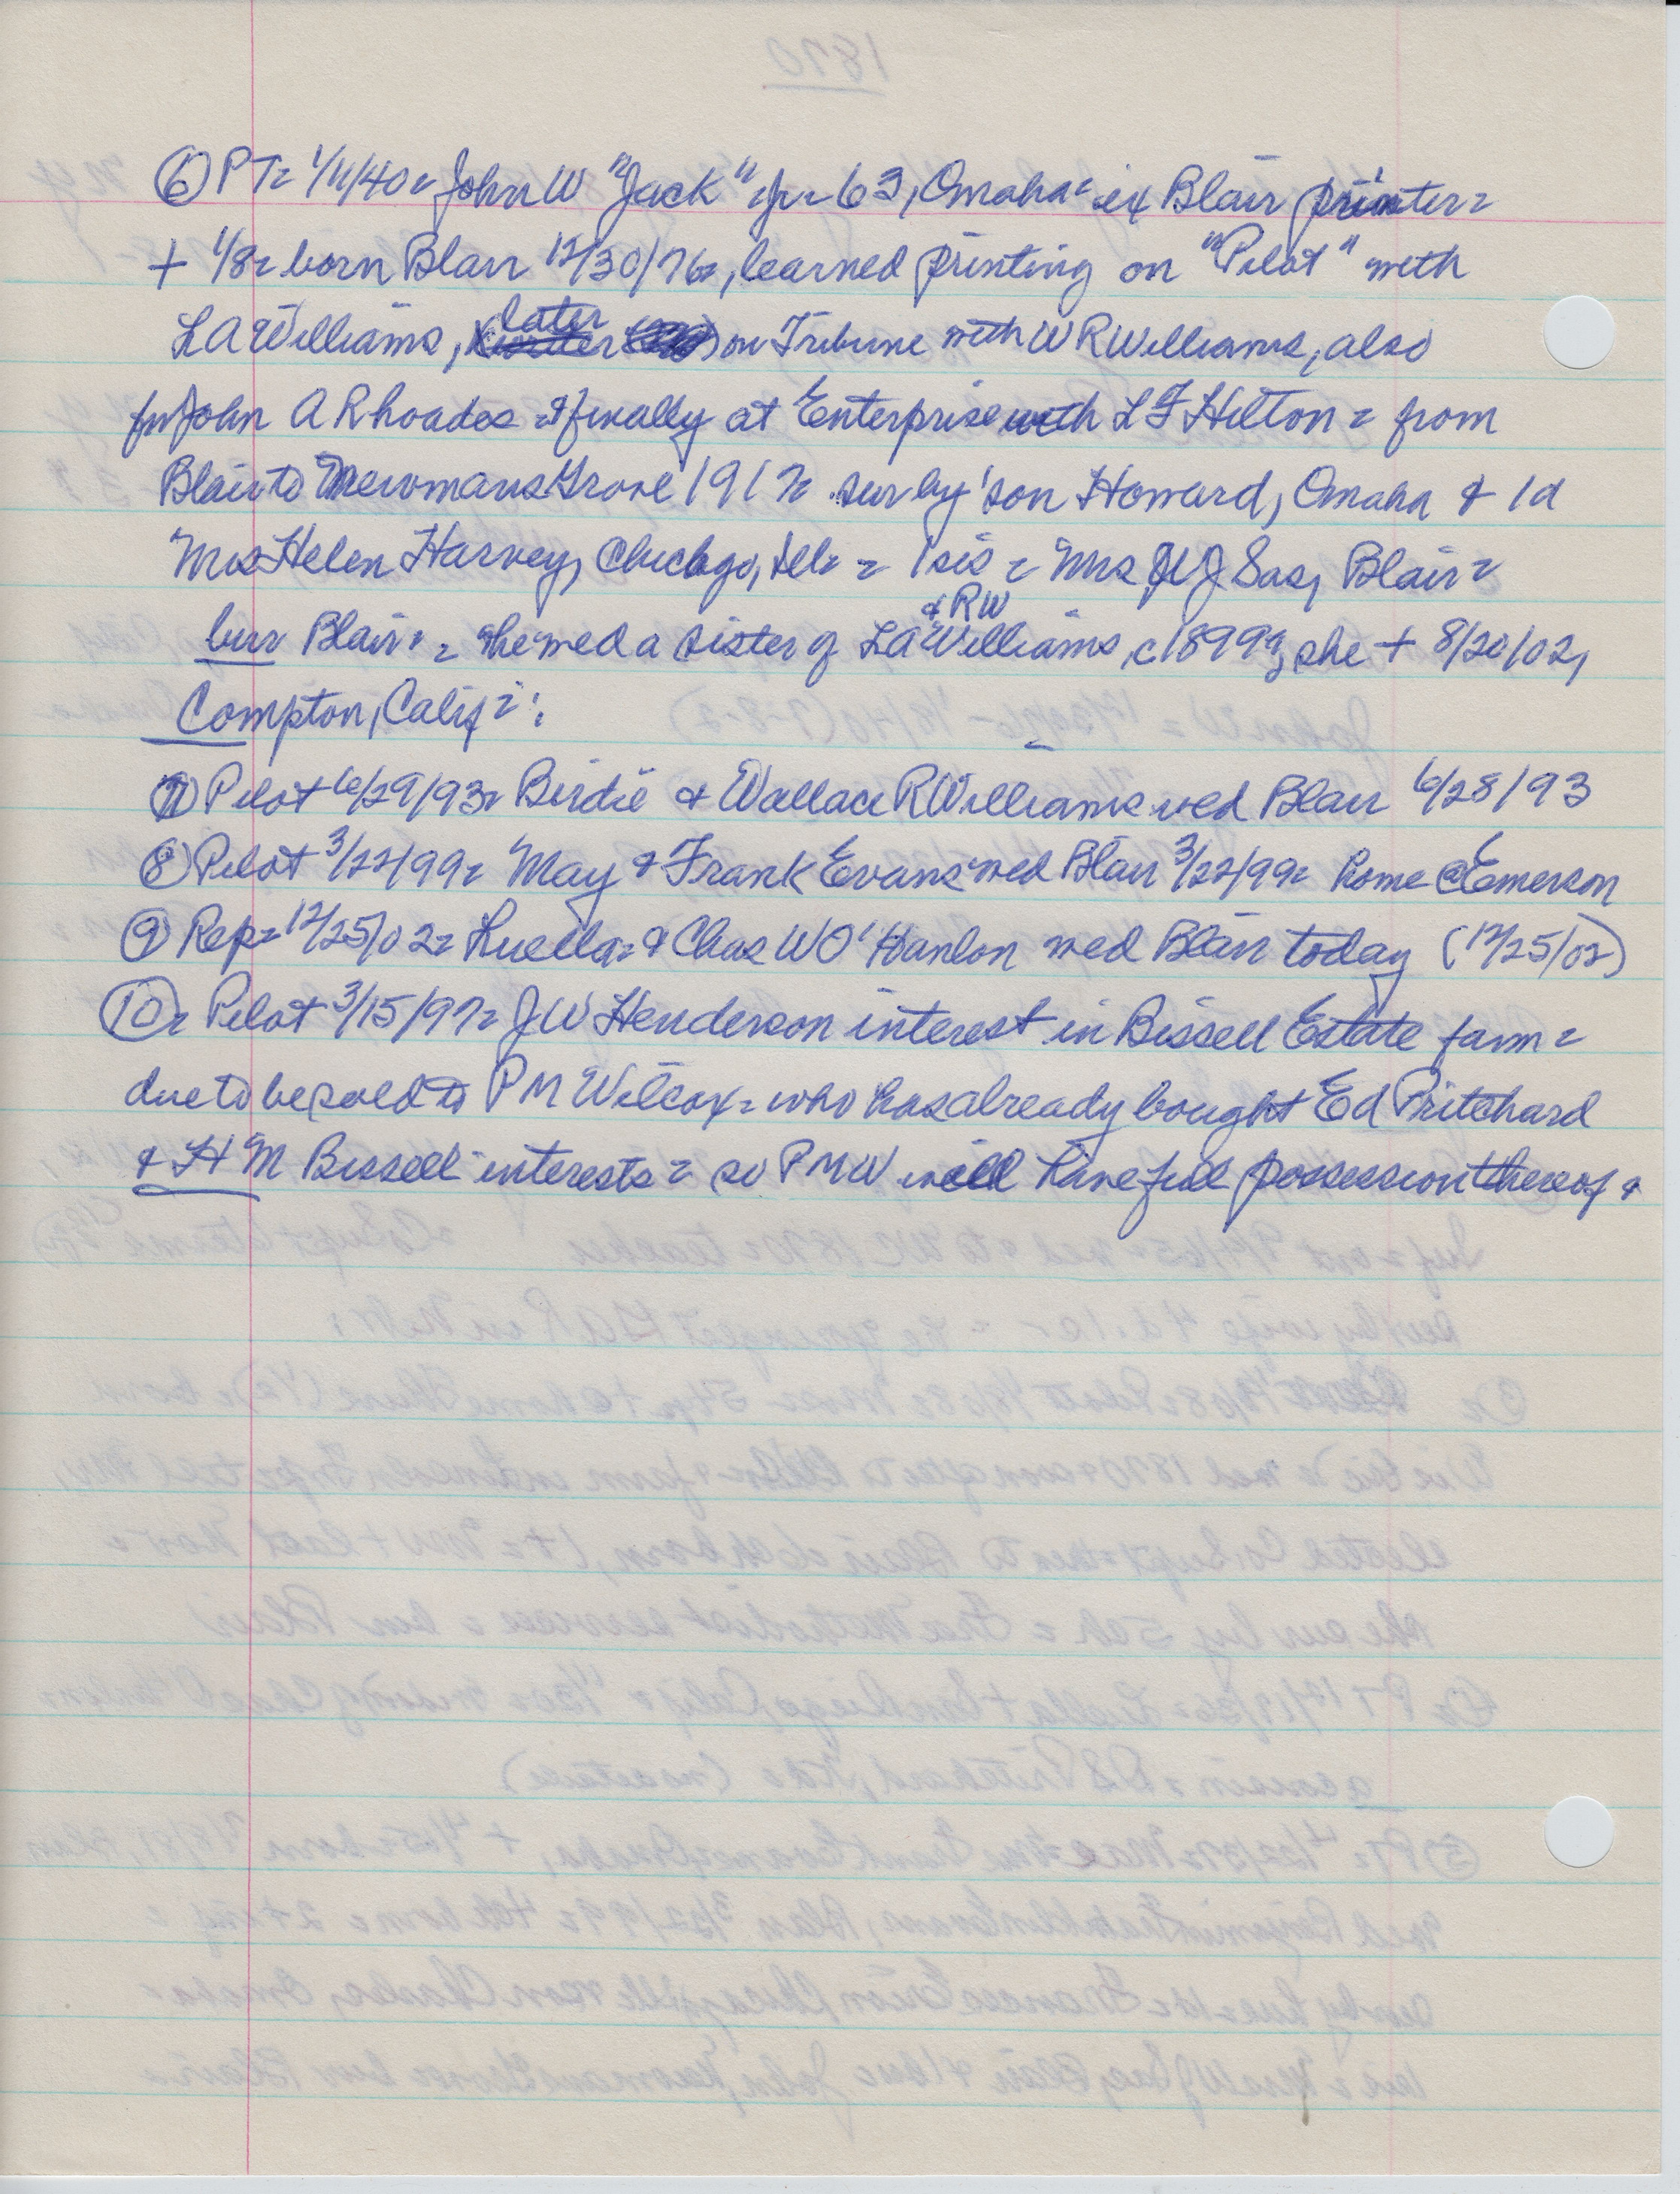 ⑥ PT= 1/11/40= John W "Jack" jr= 63, Omaha= ex Blair printer=
+ 1/8= born Blair 12/30/76=, learned printing on "Pilot" with
LA Williams, later on Tribune with W R Williams, also
for John A Rhoades = & finally at Enterprise with L F Hilton = from
Blair to Newmans Grove 1917= sur by son Howard, Omaha & 1d
Mrs Helen Harvey, Chicago, Ill= = 1 sis = Mrs W J Sas, Blair =
bur Blair = he wed a sister of LA & RW Williams, c1899, she + 8/20/02,
Compton, Calif = :
⑦ Pilot 6/29/93= Birdie & Wallace R Williams wed Blair 6/28/93
⑧ Pilot 3/22/99= May & Frank Evans wed Blair 3/22/99= home @ Emerson
⑨ Rep= 12/25/02= Luella= & Chas W O'Hanlon wed Blair today (12/25/02)
⑩= Pilot 3/15/97= J W Henderson interest in Bissell Estate farm =
due to be sold to P M Wilcox = who has already bought Ed Pritchard
& H M Bissell interests = so P M W will have full possession thereof =